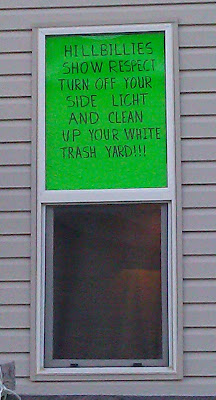 HILLBILLIES
SHOW RESPECT
TURN OFF YOUR
SIDE LIGHT
AND CLEAN
UP YOUR WHITE
TRASH YARD!!!